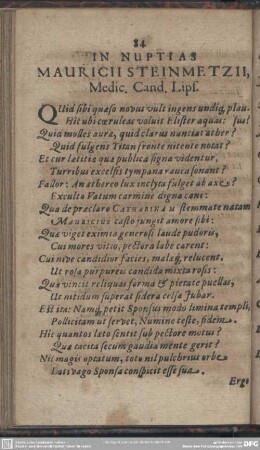 84
IN NUPTIAS
MAURICII STEINMETZII,
Medic. Cand. Lips.
QUid sibi quæso novus vult ingens undiq; plau-
Hic ubi cœruleas voluit Elister aquas: sus?
Quid molles auræ, quid clarus nuntiat æther?
Quid fulgens Titan fronte nitente notat?
Et cur letitiæ qua publica signa videntur,
Turribus excelsis tympana rauca sonant?
Fallor: An æthereo lux inclyta fulget ab axe?
Exculto Vatum carmine digna cani:
Qua de præclaro CATHARINAM stemmate natam
MAURICIUS casto jungit amore sibi:
Quæ viget eximio generosi laude pudoris,
Cui mores vitio, pectora labe carent:
Cui nive candidior facies, malæq; relucent,
Ut rosa purpureo candida mixta rosis:
Quæ vincit reliquas forma & pietate puellas,
Ut nitidum superat sidera celsa Jubar.
Est ita: Namq; petit Sponsus modo limina templi,
Pollicitam ut servet, Numine teste, fidem.
Hic quantos læto sentit sub pectore motus?
Quæ tacita secum gaudia mente gerit?
Nil magis optatum, toto nil pulchrius orbe
Lætivago Sponsa conspicit esse sua.
Ergo